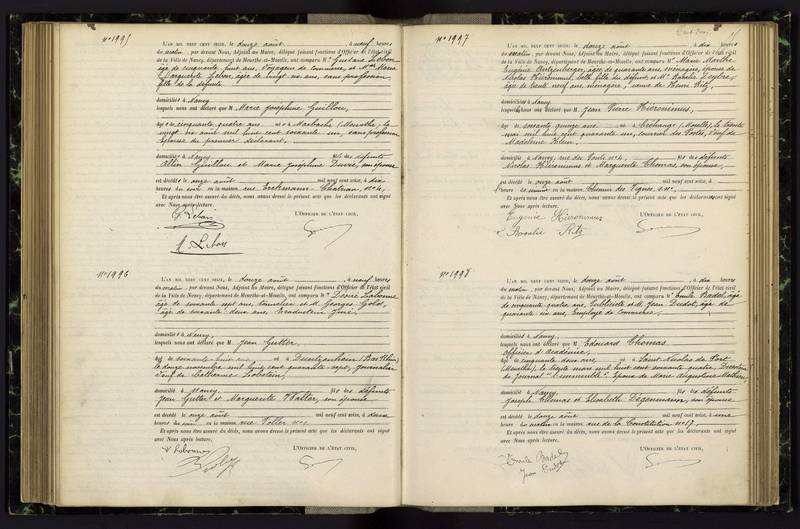 N° 1995
L'AN MIL NEUF CENT SEIZE, le douze août, à neuf heures
du matin, par devant Nous, Adjoint au Maire, délégué faisant fonctions d'Officier de l'état civil
de la Ville de Nancy, département de Meurthe-et-Moselle, ont comparu Mr Gustave Lebon
âgé de cinquante huit ans, Voyageur de commerce, et Marie
Marguerite Lebon, âgée de vingt six ans, sans profession
fille de la défunte
domiciliés à Nancy
lesquels nous ont déclaré que M Marie Joséphine Guillou,
âgée de cinquante quatre ans née à Marbache (Meurthe), le
vingt six août mil huit cent soixante un, sans profession
épouse du premier déclarant,
domiciliée à Nancy fille des défunts
Guillou et Marie Joséphine son épouse
est décédée le onze août mil neuf cent seize, à dix
heures du soir en la maison, rue Erckmann-Chatrian, N° 4,
Et après nous être assuré du décès, nous avons dressé le présent acte que les déclarants ont signé
avec Nous après lecture.
L'OFFICIER DE L'ÉTAT CIVIL,
G Lebon
M Lebon
N° 1996
L'AN MIL NEUF CENT SEIZE, le douze août, à neuf heures
du matin, par devant Nous, Adjoint au Maire, délégué faisant fonctions d'Officier de l'état civil
de la Ville de Nancy, département de Meurthe-et-Moselle, ont comparu Mr Désiré
âgé de soixante sept ans, tonnelier et M. Georges
âgé de soixante deux ans,
domiciliés à Nancy,
lesquels nous ont déclaré que M Jean Gutter
âgé de soixante huit ans, né à (Bas Rhin)
le douze novembre mil huit cent quarante sept, journalier
veuf de Catherine
domicilié à Nancy fils des défunts
Jean Gutter et Marguerite son épouse
est décédé le onze août mil neuf cent seize, à
heures du soir en la maison, rue
Et après nous être assuré du décès, nous avons dressé le présent acte que les déclarants ont signé
avec Nous après lecture.
L'OFFICIER DE L'ÉTAT CIVIL,
N° 1997
L'AN MIL NEUF CENT SEIZE, le douze août, à dix heures
du matin, par devant Nous, Adjoint au Maire, délégué faisant fonctions d'Officier de l'état civil
de la Ville de Nancy, département de Meurthe-et-Moselle, ont comparu Mmes Marie Marthe
Eugénie âgée de quarante ans, ménagère, épouse de
Nicolas Hieronimus, belle fille du défunt et Me Rosalie
âgée de trente neuf ans, ménagère, veuve de Henri Ritz,
domiciliées à Nancy
lesquelles nous ont déclaré que M Jean Pierre Hieronimus,
âgé de soixante quinze ans né à (Moselle), le trente
mai mil huit cent quarante un, courrier des Postes, veuf de
Madeleine
domicilié à Nancy, rue du N° 4, fils des défunts
Nicolas Hieronimus et Marguerite Thomas, son épouse,
est décédé le onze août mil neuf cent seize, à
heure en la maison, Chemin des Vignes, s. n°,
Et après nous être assuré du décès, nous avons dressé le présent acte que les déclarantes ont signé
avec Nous après lecture.
L'OFFICIER DE L'ÉTAT CIVIL,
Eugénie Hieronimus
Rosalie Ritz
N° 1998
L'AN MIL NEUF CENT SEIZE, le douze août, à dix heures
du matin, par devant Nous, Adjoint au Maire, délégué faisant fonctions d'Officier de l'état civil
de la Ville de Nancy, département de Meurthe-et-Moselle, ont comparu Mr Emile Badel, âgé
de cinquante quatre ans, publiciste et M. Jean Dudot, âgé de
quarante six ans, employé de commerce,
domiciliés à Nancy,
lesquels nous ont déclaré que M Edouard Thomas
officier d'académie,
âgé de cinquante deux ans, né à Saint Nicolas de Port
(Meurthe), le trente mars mil huit cent soixante quatre, Directeur
du journal "l'immeuble", époux de Marie Mathieu,
domicilié à Nancy fils des défunts
Joseph Thomas et Elisabeth son épouse
est décédé le douze août mil neuf cent seize, à une
heure du matin en la maison, rue de la Constitution N° 17
Et après nous être assuré du décès, nous avons dressé le présent acte que les déclarants ont signé
avec Nous après lecture.
L'OFFICIER DE L'ÉTAT CIVIL,
Emile Badel
Jean Dudot